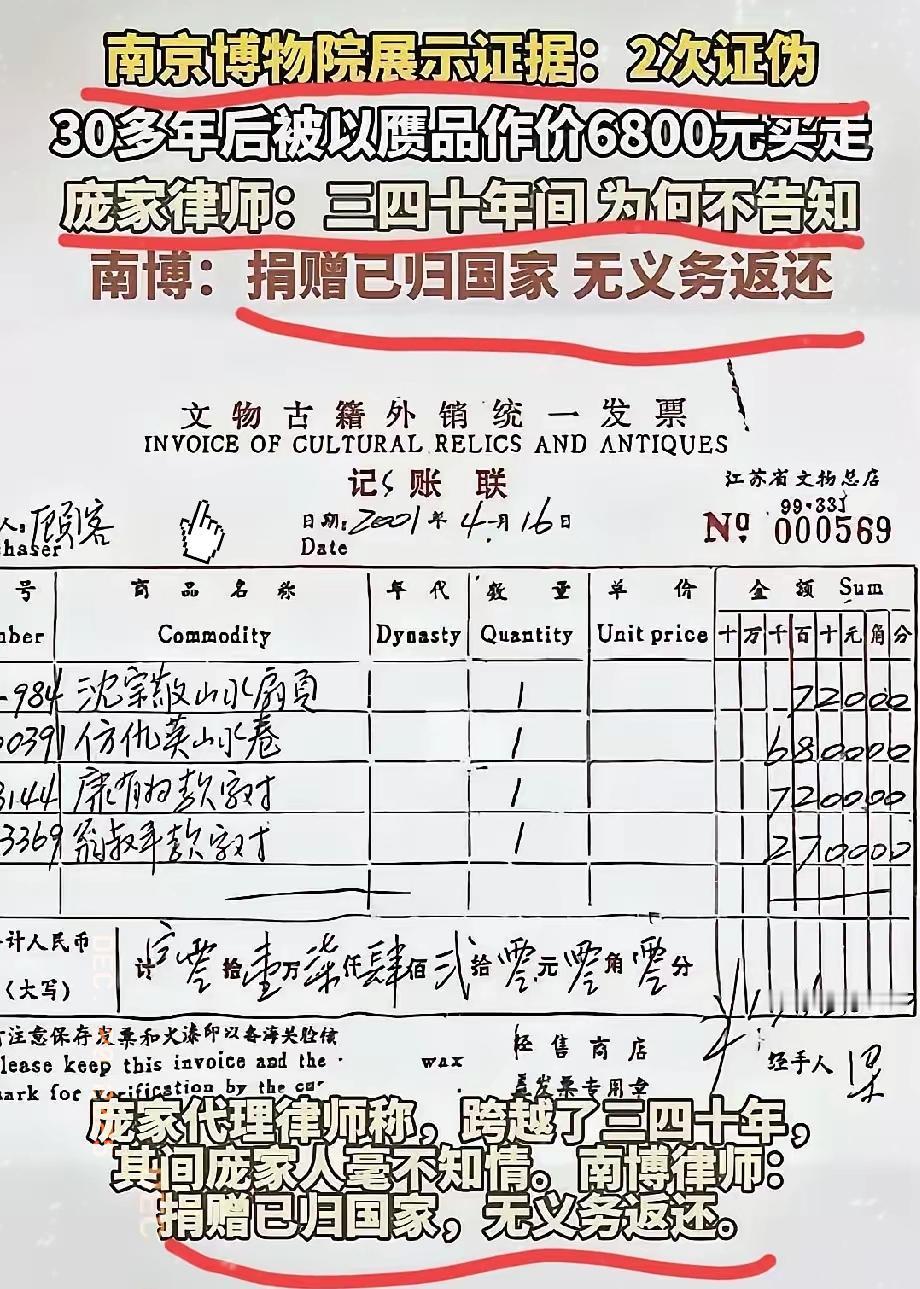 南京博物院展示证据：2次证伪
30多年后被以赝品作价6800元买走
庞家律师：三四十年间 为何不告知
南博：捐赠已归国家 无义务返还
文物古籍外销统一发票
INVOICE OF CULTURAL RELICS AND ANTIQUES
记账联
江苏省文物总店
99·33J
人：顾客
chaser
日期：2001年4月16日
Date
Nº 000569
号 商品名称 年代 数量 单价 金额 Sum
nber Commodity Dynasty Quantity Unit price 十万千百十元角分
-984 沈宗敬山水扇页 1 72000
0391 仿仇英山水卷 1 680000
3144 康有为款字对 1 720000
3369 翁叔平款字对 1 270000
计人民币
（大写）
计 零拾壹万柒仟肆佰贰拾零元零角零分
注意保存发票和火漆印以备海关检核
lease keep this invoice and the wax
mark for verification by the
经售商店
盖发票专用章
经手人
庞家代理律师称，跨越了三四十年，
其间庞家人毫不知情。南博律师：
捐赠已归国家，无义务返还。